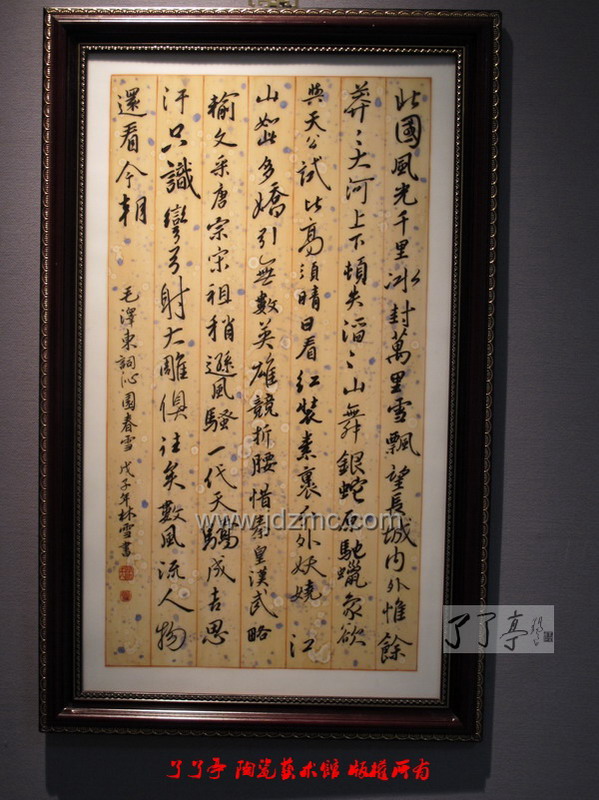 北國風光千里冰封萬里雪飄望長城內外惟餘
莽〻大河上下頓失滔〻山舞銀蛇原馳蠟象欲
與天公試比高須晴日看紅裝素裹分外妖嬈江
山如此多嬌引無數英雄競折腰惜秦皇漢武略
輸文采唐宗宋祖稍遜風騷一代天驕成吉思
汗只識彎弓射大雕俱往矣數風流人物
還看今朝
毛澤東詞沁園春雪 戊子年林雪書
www.jdzmc.com
了了亭
了了亭 陶瓷藝术館 版權所有